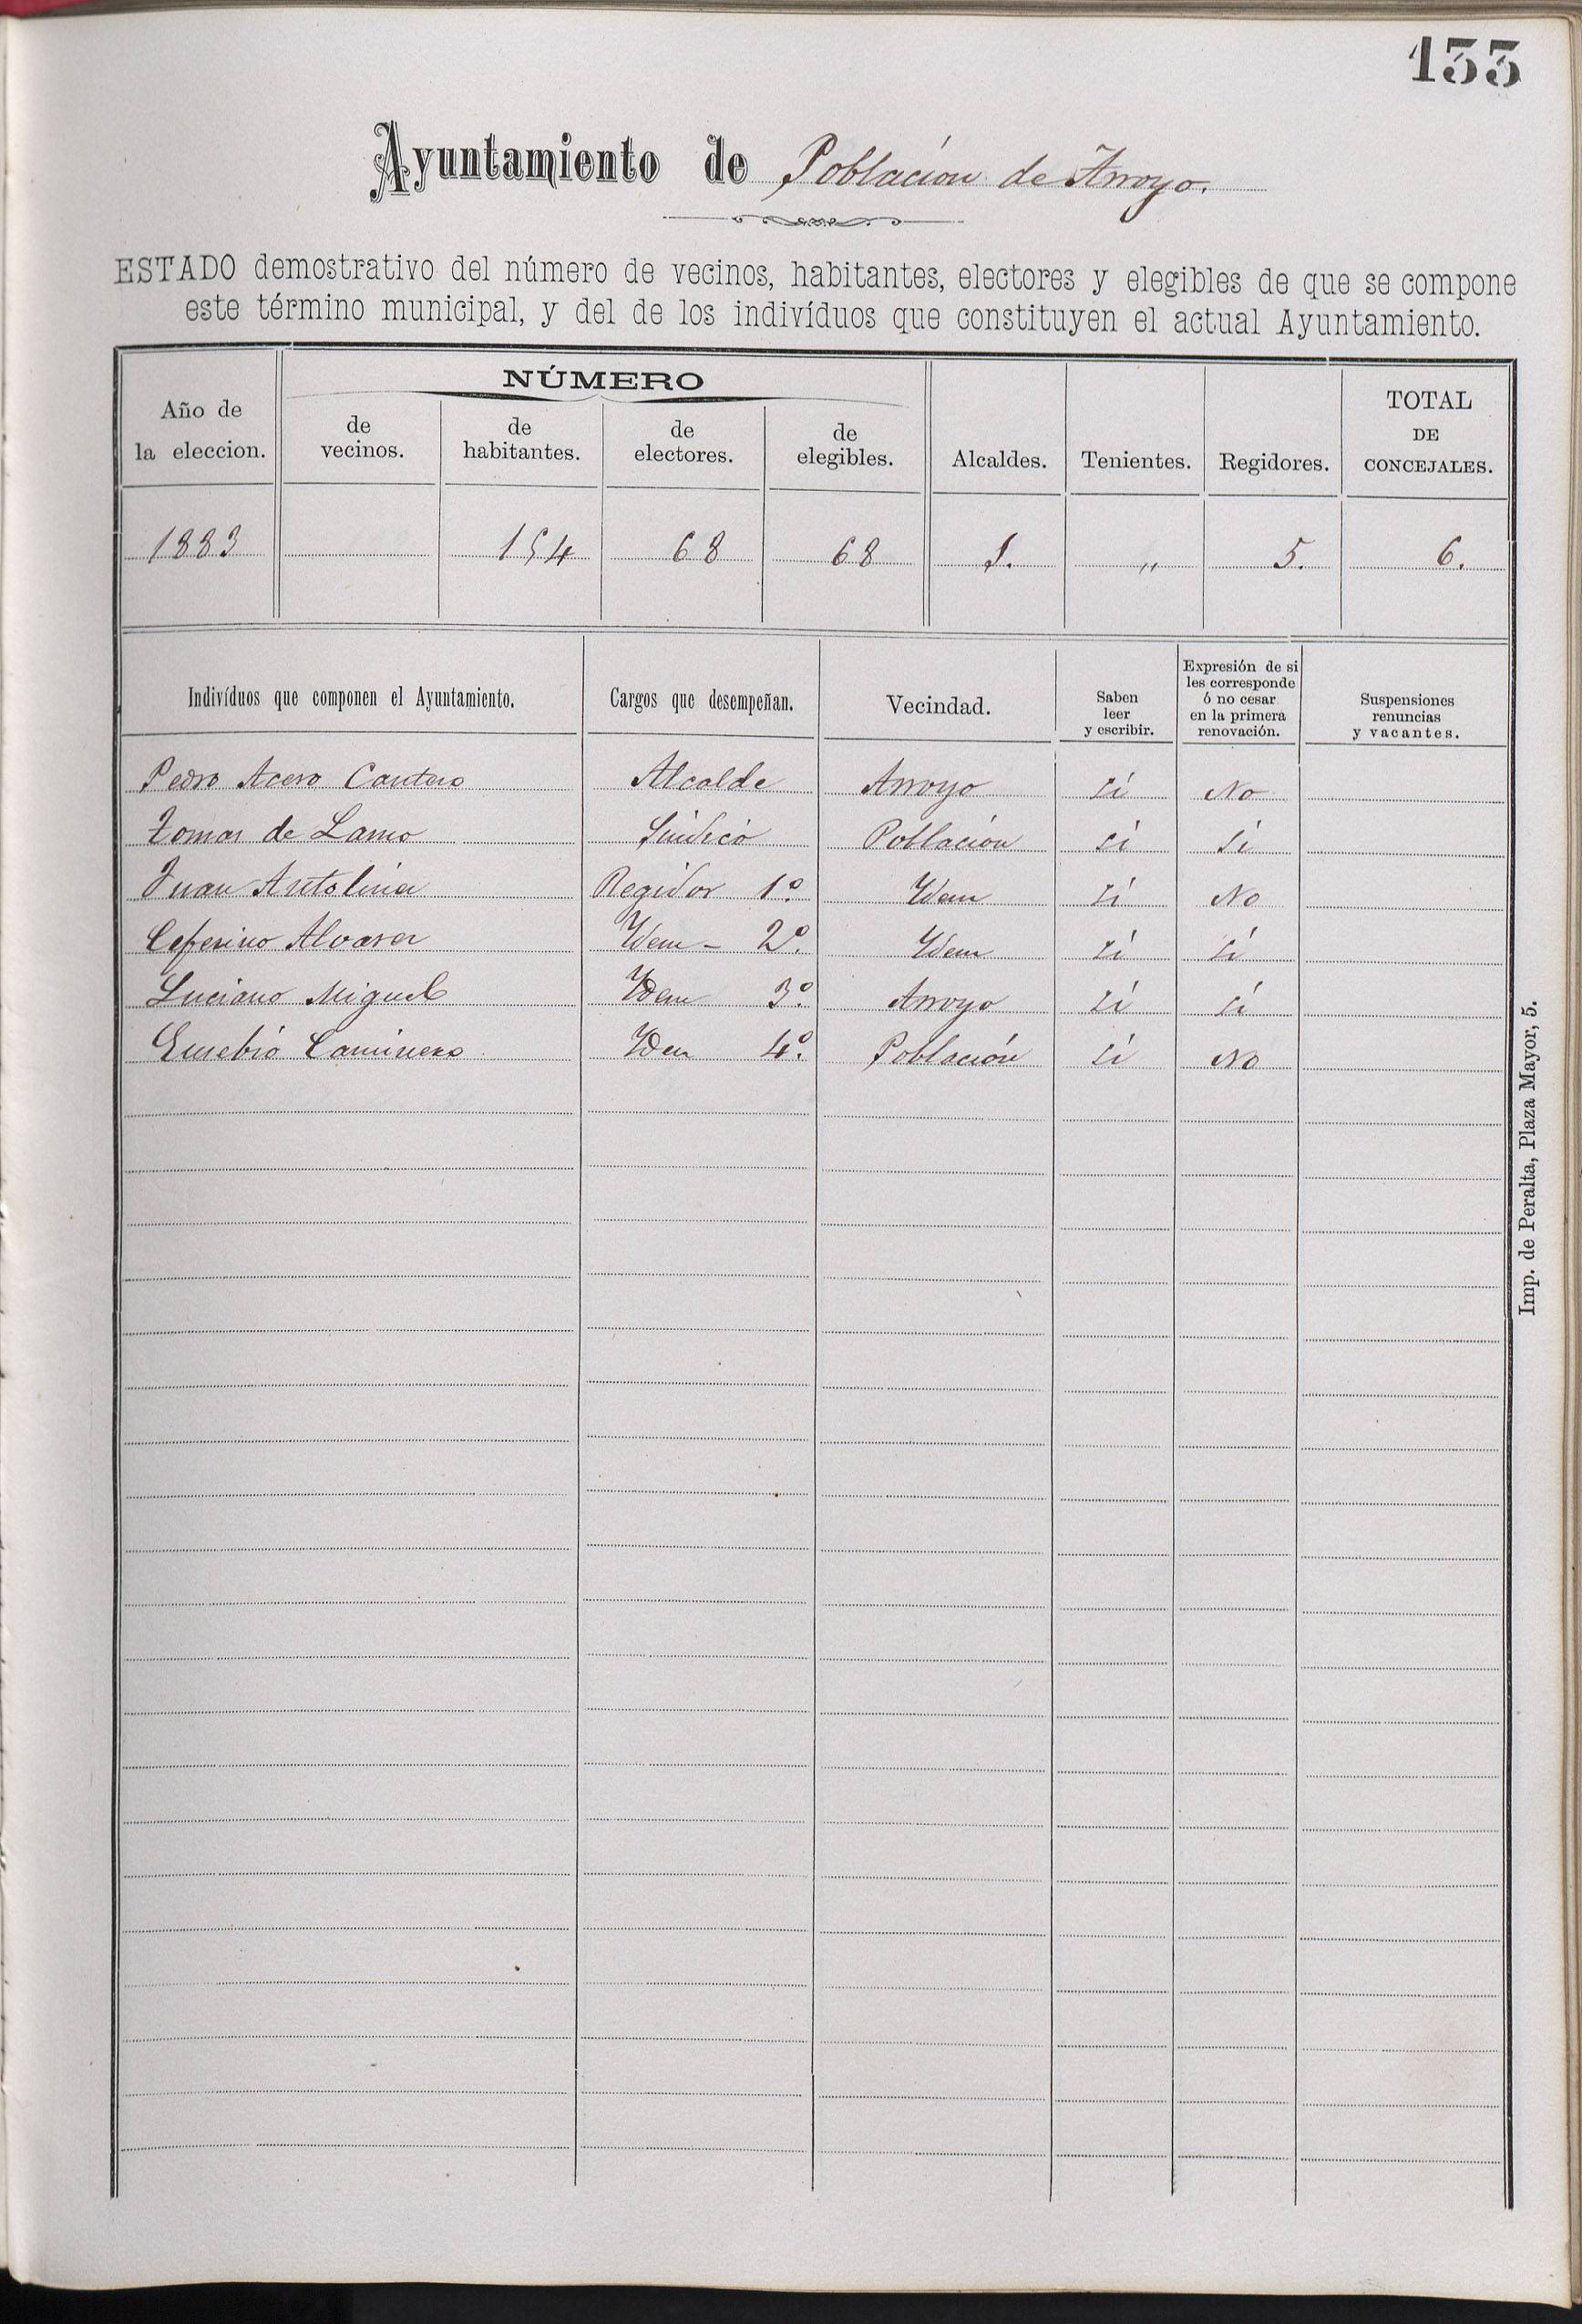 133
Ayuntamiento de Población de Arroyo.
ESTADO demostrativo del número de vecinos, habitantes, electores y elegibles de que se compone
este término municipal, y del de los indivíduos que constituyen el actual Ayuntamiento.
Año de la eleccion. NÚMERO de vecinos. de habitantes. de electores. de elegibles. Alcaldes. Tenientes. Regidores. TOTAL DE CONCEJALES.
1883 154 68 68 1. " 5. 6.
Indivíduos que componen el Ayuntamiento. Cargos que desempeñan. Vecindad. Saben leer y escribir. Expresión de si les corresponde ó no cesar en la primera renovación. Suspensiones renuncias y vacantes.
Pedro Acero Cantero Alcalde Arroyo Sí No
Tomas de Lamo Síndico Población Sí Sí
Juan Antolina Regidor 1º. Ydem Sí No
Ceferino Alvarez Ydem - 2º. Ydem Sí Sí
Luciano Miguel Ydem 3º. Arroyo Sí Sí
Eusebio Caminero Ydem 4º. Población Sí No
Imp. de Peralta, Plaza Mayor, 5.